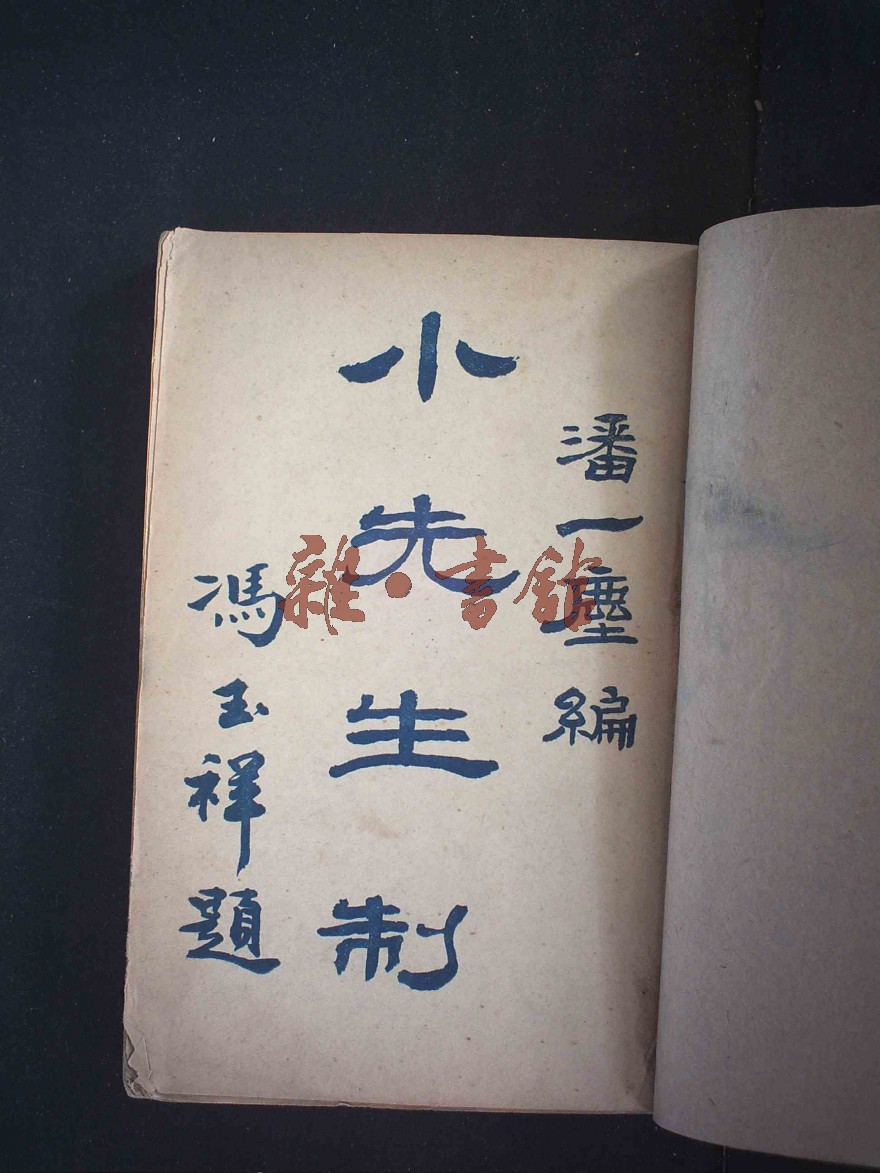 潘一塵編
小先生制
馮玉祥題
雜·書館